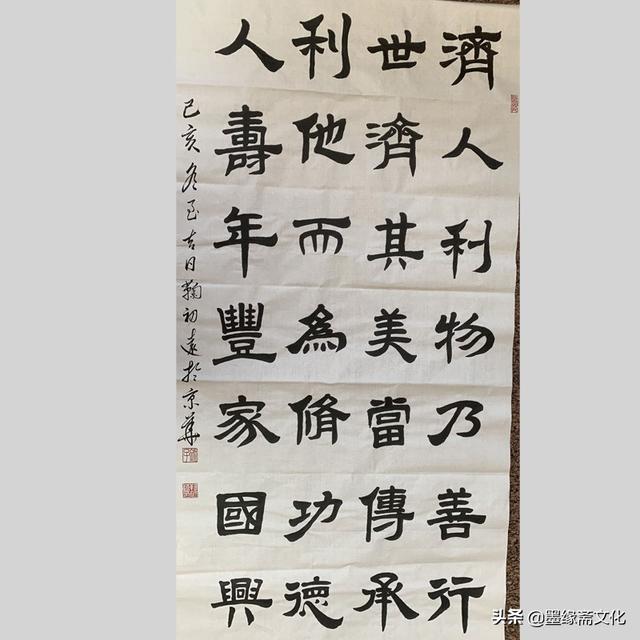 濟人利物乃善行
世濟其美當傳承
利他而為脩功德
人壽年豐家國興
己亥冬至吉日鞠初遠於京華
头条 @墨缘斋文化